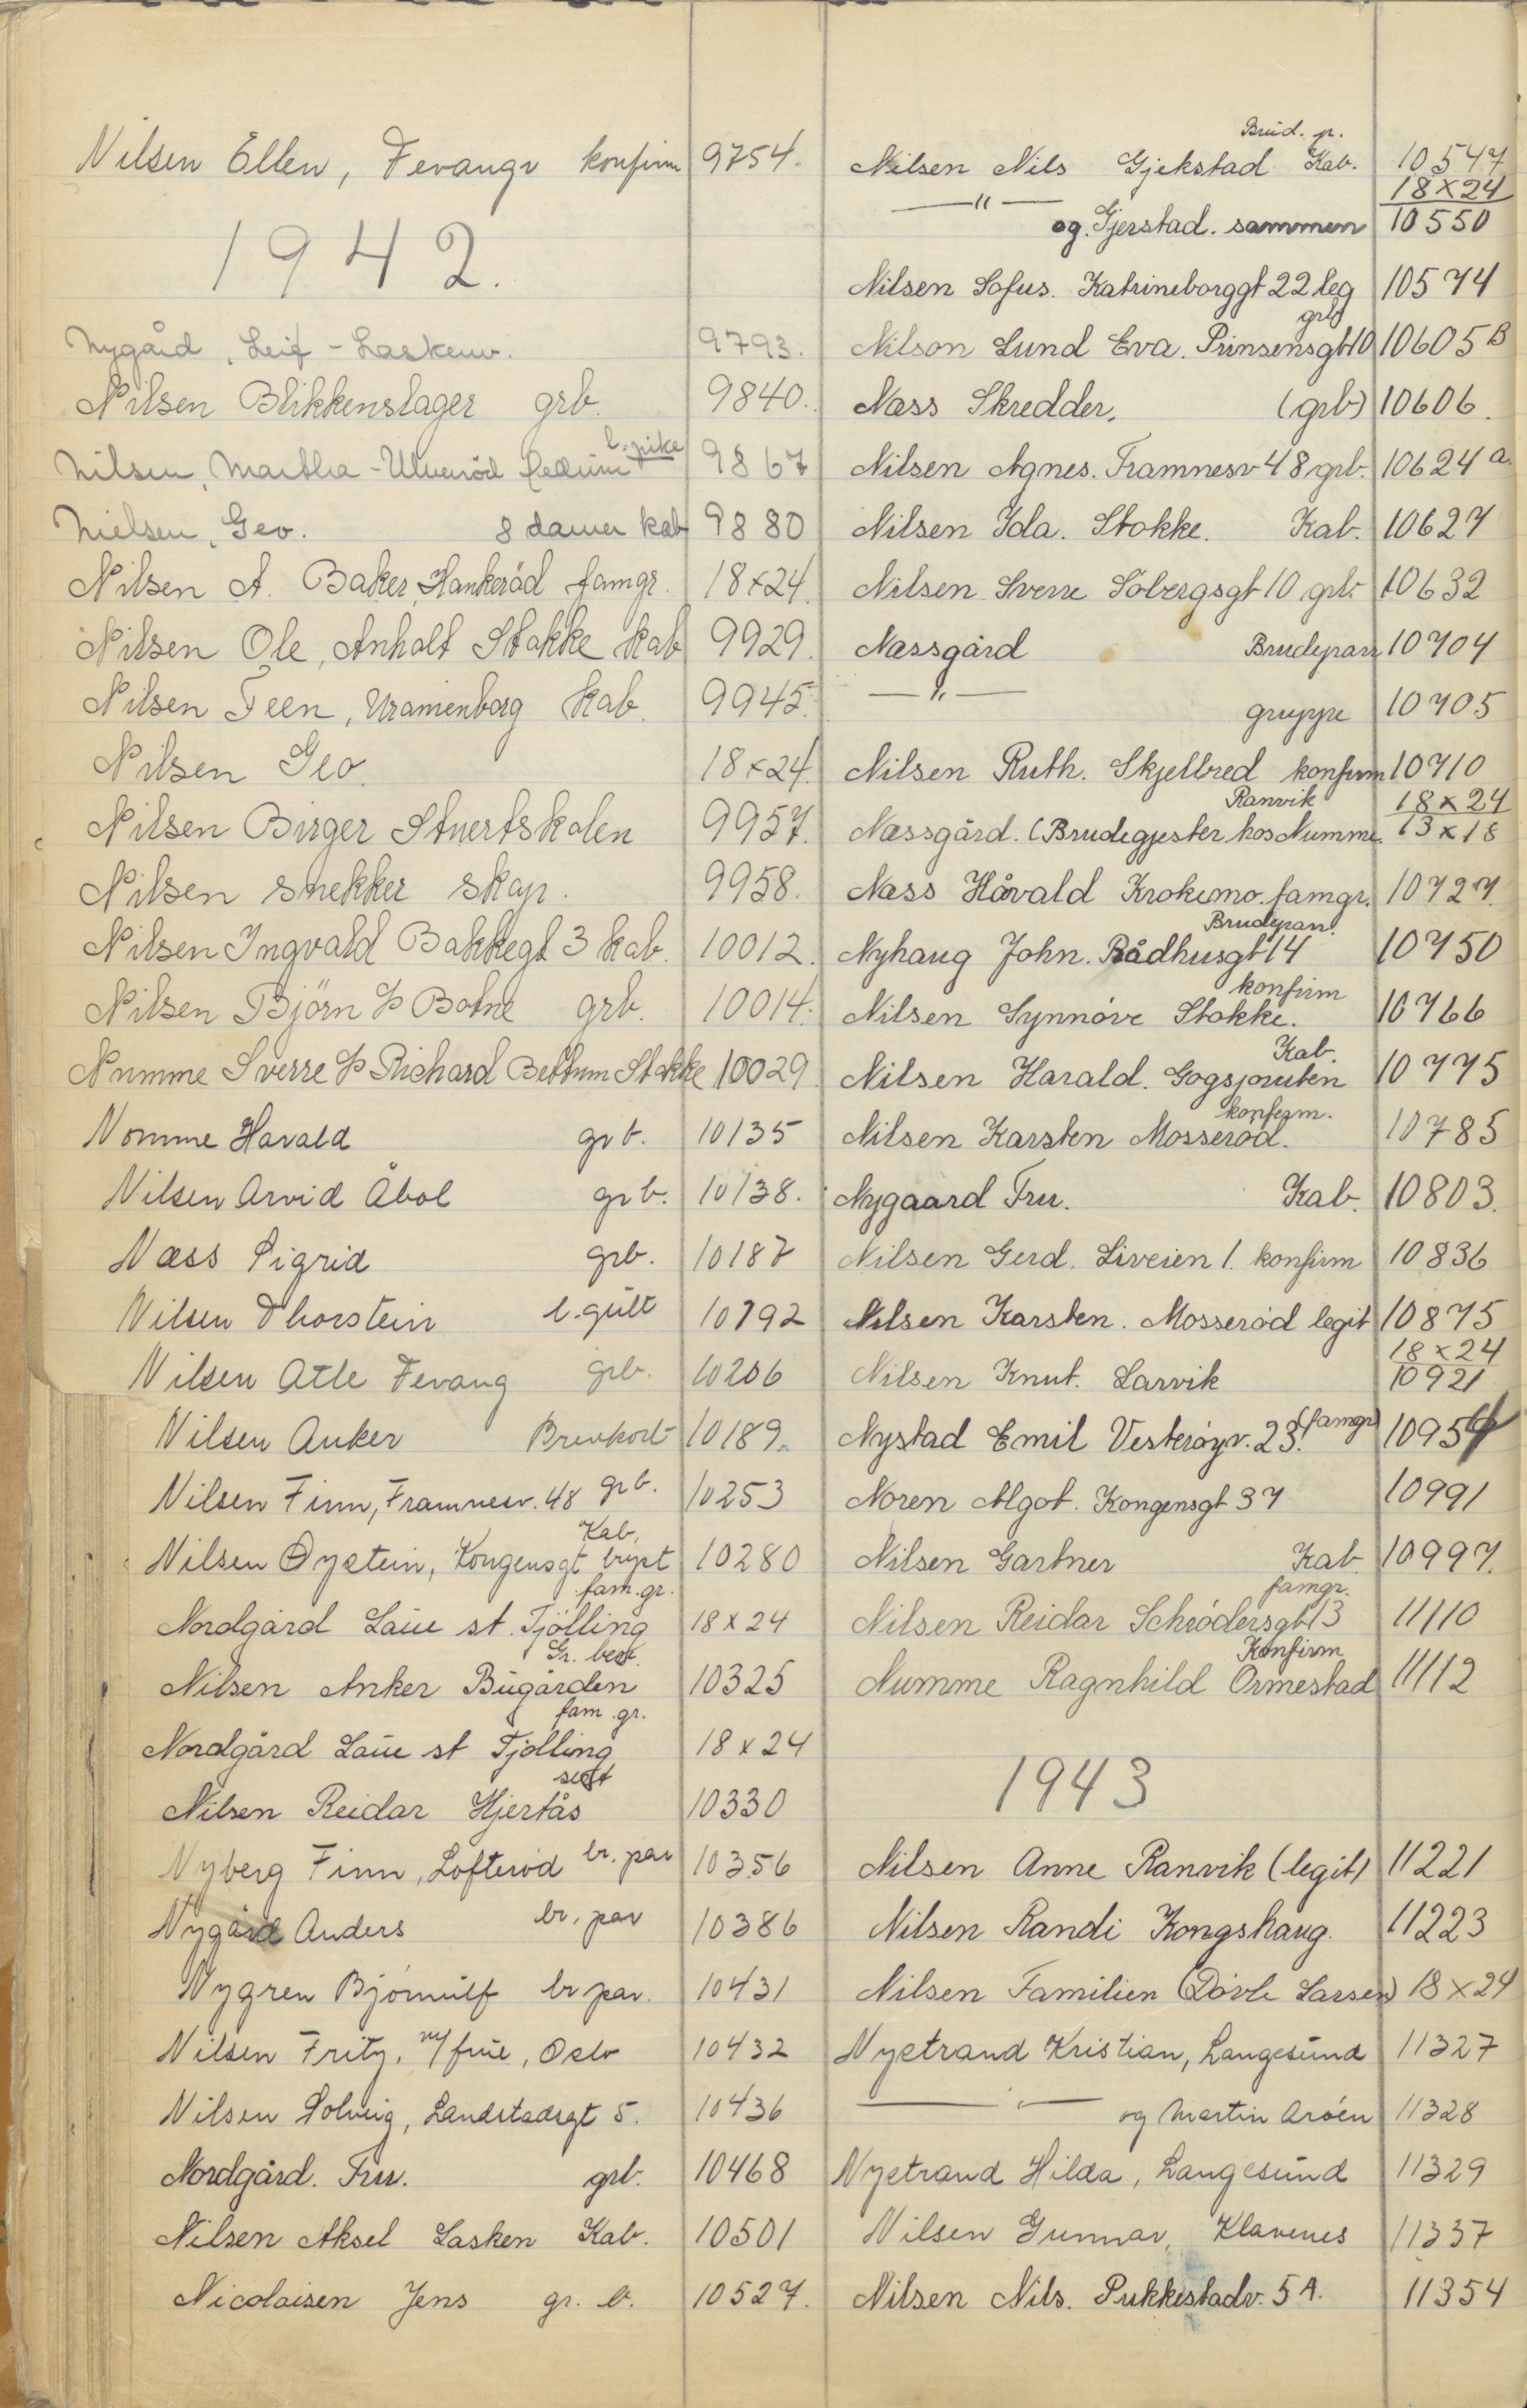 Nilsen Ellen, Fevangv konfirm 9754.
1942.
Nygård, Leif - Laskenv. 9793.
Nilsen Blikkenslager grb. 9840.
l. pike
Nilsen, Martha - Ulverød 9867
Nielsen, Geo. 8 damer kab 9880
Nilsen A. Baker, Hankeröd famgr. 18x24.
Nilsen Ole, Anholt Stokke kab 9929.
Nilsen Teen, Uranienborg kab. 9945.
Nilsen Geo. 18x24.
Nilsen Birger Stuertskolen 9957.
Nilsen snekker skap. 9958.
Nilsen Ingvald Bakkegt 3 kab. 10012.
Nilsen Björn Botne grb. 10014.
Numme Sverre Richard Bettum Stokke 10029.
Nomme Havald grb. 10135
Nilsen Arvid Åbol grb. 10138.
Næss Sigrid grb. 10187
Nilsen Thorstein l. gütt 10192
Nilsen Atle Fevang grb. 10206
Nilsen Anker Brevkort 10189.
Nilsen Finn, Framnesv. 48 grb. 10253
Kab.
Nilsen Øystein, Kongensgt bryst 10280
fam. gr.
Nordgård Laüe st. Tjölling 18x24
Gr. best.
Nilsen Anker Bügården 10325
fam. gr.
Nordgård Laüe st Tjölling 18x24
Nilsen Reidar Hjertås 10330
Nyberg Finn, Lofteröd br. par 10356
Nygård Anders br. par 10386
Nygren Björnulf br par. 10431
Nilsen Fritz, m/frue, Oslo 10432
Nilsen Solveig, Landstadsgt 5. 10436
Nordgård. Fru. grb. 10468
Nilsen Aksel Lasken Kab. 10501
Nicolaisen Jens gr. b. 10527.
Brud. p.
Nilsen Nils Gjekstad Kab. 10547
18x24
—"—
og. Gjerstad. sammen 10550
Nilsen Sofus. Katrineborggt 22 leg 10574
grb
Nilson Lund Eva. Prinsensgt 10 10605 B
Næss Skredder. (grb) 10606.
Nilsen Agnes. Framnesv 48 grb. 10624 a.
Nilsen Ida. Stokke. Kab. 10627
Nilsen Sverre Söbergsgt 10 grb. 10632
Næssgård Brudepar 10704
—"— gruppe 10705
Nilsen Ruth. Skjelbred konfirm 10710
Ranvik 18x24
Næssgård. (Brudegjester hos Numme. 13x18
Næss Håvald Krokemo. famgr. 10727.
Brudepar.
Nyhaug John. Rådhusgt 14 10750
konfirm
Nilsen Synnöve Stokke. 10766
Kab.
Nilsen Harald. Gogsjøruten 10775
konfirm.
Nilsen Karsten Mosseröd. 10785
Nygaard Fru. Kab. 10803.
Nilsen Gerd. Liveien 1. konfirm 10836
Nilsen Karsten. Mosseröd legit 10875
18x24
Nilsen Knut. Larvik 10921
Nystad Emil Vesterøyv. 23. (famgr) 10954
Noren Algot. Kongensgt 37 10991
Nilsen Gartner Kab. 10997.
famgr.
Nilsen Reidar Schrödersgt 13 11110
Konfirm
Numme Ragnhild Ormestad 11112
1943
Nilsen Anne Ranvik (legit) 11221
Nilsen Randi Kongshaug. 11223
Nilsen Familien (Dövle Larsen) 18x24
Nystrand Kristian, Langesund 11327
—"— og Martin Aröen 11328
Nystrand Hilda, Langesund 11329
Nilsen Gunnar, Klavenes 11337
Nilsen Nils. Pukkestadv. 5 A. 11354